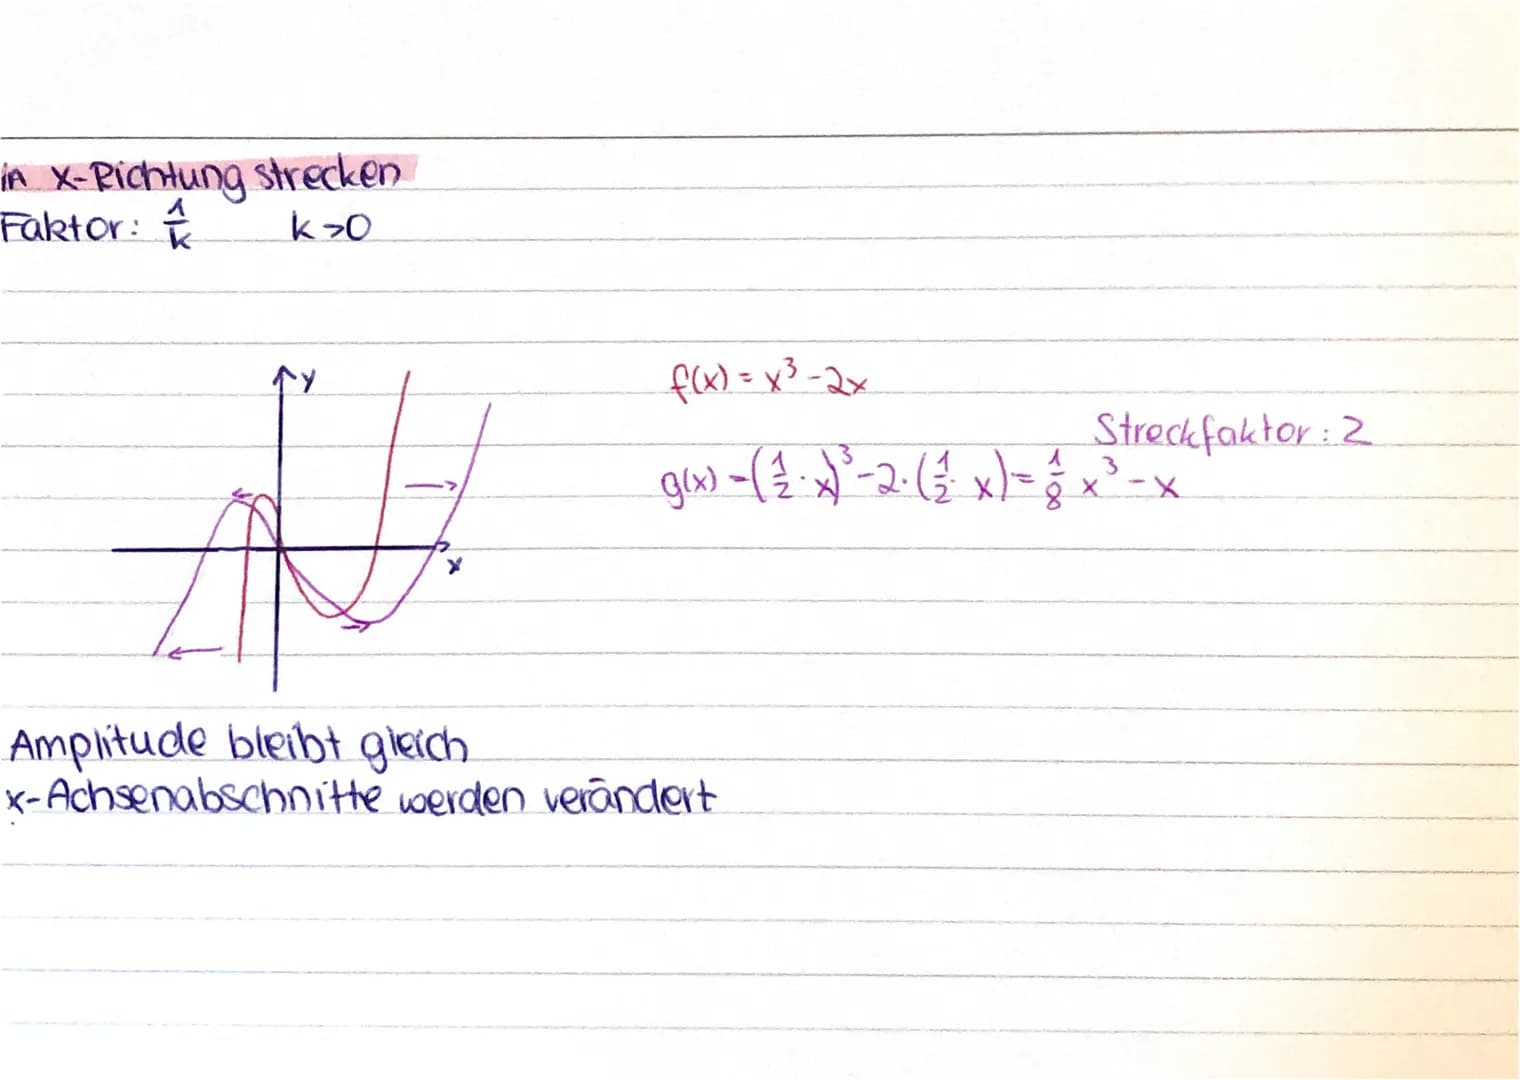 in x-Richtung strecken
Faktor: 1/k k>0
y
f(x) = x³-2x
Streckfaktor: 2
g(x) = (1/2 · x)³-2·(1/2 · x) = 1/8 x³-x
x
Amplitude bleibt gleich
x-Achsenabschnitte werden verändert